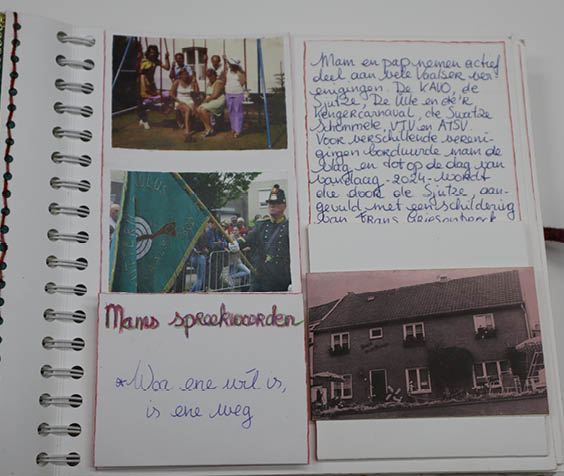 Mam en pap nemen actief
deel aan vele Vaalser ver
enigingen. De KAVO, de
Sjutze, De Ule en de'r
Kengercarnaval, de Swatze
Schömmele, VTV en ATSV.
Voor verschillende vereni-
gingen borduurde mam de
vlag en tot op de dag van
vandaag -2024- wordt
die door de Sjutze aan-
gevuld met een schildering
van Frans
Mams spreekwoorden
*Woa ene wil is,
is ene weg